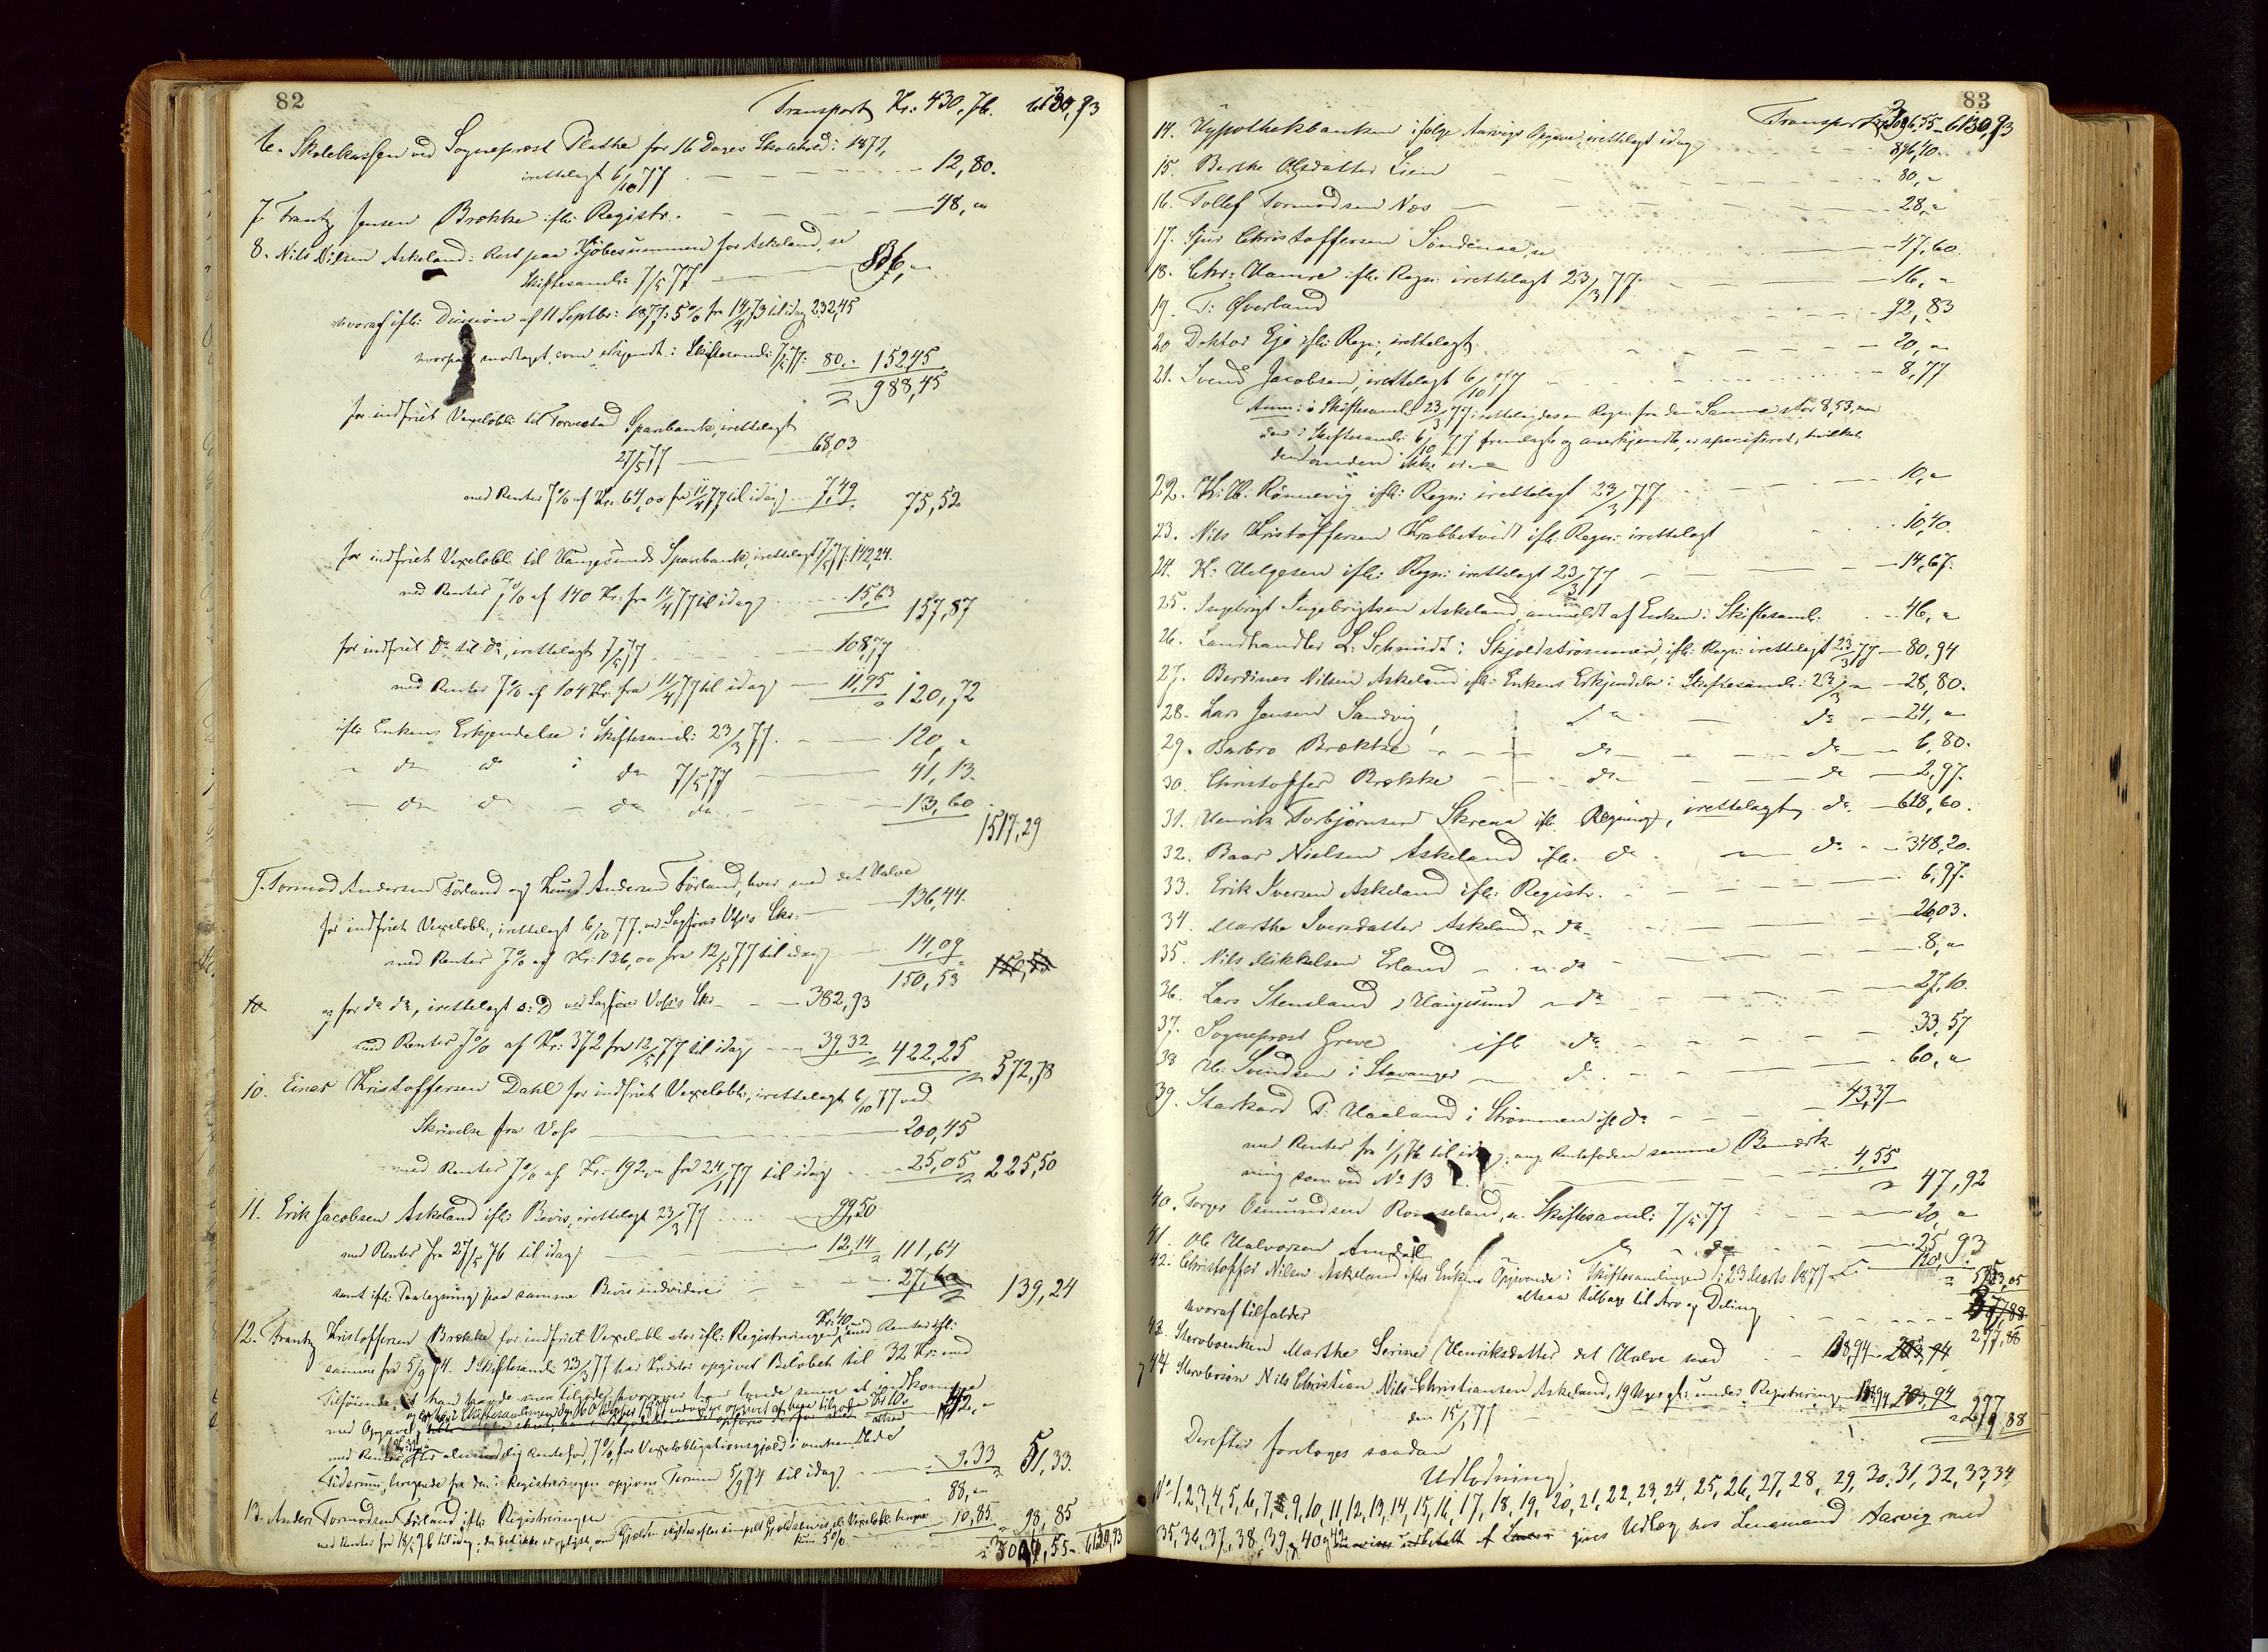 82
Transport Kr: 430,76. 6130,93
6. Skolekassen ved Sogneprest Plathe for 16 Dages Skolehold i 1877,
irettelagt 6/10 77 12,80.
7. Frantz Jensen Brække ifl: Registr. 48,"
8. Nils Nilsen Askeland: Rest paa Kjöbesummen for Askeland, se
Skiftesaml: 7/5 77 836,"
hvoraf ifl: Decision af 11 Septbr: 1877: 5% fra 14/4 73 til idag 232,45
hvorpaa modtaget, som erkjendt i Skiftesaml: 7/5 77: 80,- 152,45
988,45
for indfriet Vexelobl: til Torvestad Sparebank, irettelagt
27/5 77 68,03
med Renter 7% af Kr. 64,00 fra 11/4 77 til idag 7,49 75,52
for indfriet Vexelobl. til Haugesunds Sparebank, irettelagt 7/5 77: 142,24.
med Renter 7% af 140 Kr: fra 11/4 77 til idag 15,63 157,87
for indfriet do til do, irettelagt 7/5 77 108,77
med Renter 7% af 104 Kr. fra 11/4 77 til idag 11,95 120,72
ifl: Enkens Erkjendelse i Skiftesaml: 23/3 77. 120,"
" do do i do 7/5 77 41,13.
" do do - do do 13,60
1517,29
9. Tormod Andersen Førland og Knud Andersen Førland, hver med det Halve
for indfriet Vexelobl., irettelagt 6/10 77, ved Sagfører Voss's Skr. 136,44.
med Renter 7% af Kr: 136,00 fra 12/5 77 til idag 14,09
150,53
og for do do, irettelagt s: D ved Sagfører Voss's Skr. 382,93
med Renter 7% af Kr: 372 fra 12/5 77 til idag 39,32 422,25
572,78
10. Einar Kristoffersen Dahl for indfriet Vexelobl., irettelagt 6/10 77 ved
Skrivelse fra Voss 200,45
med Renter 7% af Kr: 192," fra 24/1 77 til idag 25,05 225,50
11. Erik Jacobsen Askeland ifl: Bevis, irettelagt 23/3 77 99,50
med Renter fra 27/5 76 til idag 12,14 111,64
samt ifl: Paategning paa samme Bevis endvidere 27,60 139,24
12. Frantz Kristoffersen Brække for indfriet Vexelobl. stor ifl: Registreringen Kr: 40, med Renter ifl:
samme fra 5/9 74. I Skiftesaml: 23/3 77 har Kreditor opgivet Beløbet til 32 Kr: med
Tilføiende, at han havde mere tilgode, hvorover han lovede senere at indkomme
med Opgave,
med Renter efter almindelig Rentefod, 7%, for Vexelobligationsgjæld i omhandlede
Tidsrum, beregnede fra den i Registreringen opgivne Termin 5/9 74 til idag 9,33 51,33.
88,"
13. Anders Tormodsen Førland, ifl: Registreringen
med Renter fra 18/5 76 til idag; da det ikke er oplyst, om Gjælden skyldes efter simpelt Gjældsbevis el. Vexelobl. beregnes kun 5% 10,85 98,85
6130,93
83
Transport 6130,93
14. Hypothekbanken ifølge Aarvigs Opgave, irettelagt idag 896,40.
15. Berthe Olsdatter Lien 80,"
16. Tollef Tormodsen Næs 28,"
17. Sjur Christoffersen Søndenaa, se 47,60.
18. Chr: Hamre ifl: Regn: irettelagt 23/3 77. 16,"
19. T: Øverland 92,83
20 Doktor Eje ifl: Regn:, irettelagt 20,"
21. Svend Jacobsen, irettelagt 6/10 77 8,77
Anm: i Skiftesaml. 23/3 77 irettelagdes en Regn: fra den Samme stor 8,53, men
den i Skiftesaml: 6/10 77 fremlagte og anerkjendte, er specificeret, hvilket
den anden ikke er.
22. K: B. Rønnevig ifl: Regn: irettelagt 23/3 77. 10,"
23. Nils Kristoffersen Krabbetvedt ifl: Regn: irettelagt 10,40.
24. K: Helgesen ifl: Regn: irettelagt 23/3 77 14,67.
25. Ingebrigt Ingebrigtsen Askeland, anmeldt af Enken i Skiftesaml: 46,"
26. Landhandler L. Schmidt i Skjoldstrømmen, ifl: Regn: irettelagt 23/3 77 80,94
27. Berdines Nilsen Askeland ifl: Enkens Erkjendelse i Skiftesaml: 23/3 28,80.
28. Lars Jensen Sandvig, do do 24,"
29. Barbro Brække do do 6,80.
30. Christoffer Brække do do 2,97.
31. Henrik Torbjørnsen Skreaa ifl. Regning, irettelagt do 618,60.
32. Baar Nielsen Askeland ifl: do do 348,20.
33. Erik Iversen Askeland ifl: Registr. 6,97.
34. Marthe Iversdatter Askeland " do 26,03.
35. Nils Mikkelsen Erland " do 8,"
36. Lars Stensland i Haugesund " do 27,10.
37. Sogneprest Greve ifl do 33,57
38 H: Svendsen i Stavanger do 60,"
39. Starkard T: Haaland i Strømmen ifl do 43,37
med Renter fra 1/1 76 til idag; ang. Rentefoden samme Bemærk-
ning som ved No 13 4,55 47,92
40. Torger Osmundsen Rommeland, se Skiftesaml: 7/5 77 20,"
41. Ole Halvorsen Amdal do 25 93
42. Christoffer Nilsen Askeland efter Enkens Opgivende i Skiftesamlingen i 23 Marts 1877 120,"
altsaa tilbage til Arv og Deling 277,88
hvoraf tilfalder
43. Stervboenken Marthe Serine Henriksdatter det Halve med 138,94
og 44 Sterbosøn Nils Christian Nils-Christiansen Askeland, 19 Uger gl: under Registreringen 138,94
den 15/1 77 277,88
Derefter foretoges saadan
Udlodning:
No 1, 2, 3, 4, 5, 6, 7, 8, 9, 10, 11, 12, 13, 14, 15, 16, 17, 18, 19, 20, 21, 22, 23, 24, 25, 26, 27, 28, 29, 30, 31, 32, 33, 34
35, 36, 37, 38, 39, 40 og 42 gives Udlæg hos Lensmand Aarvig med